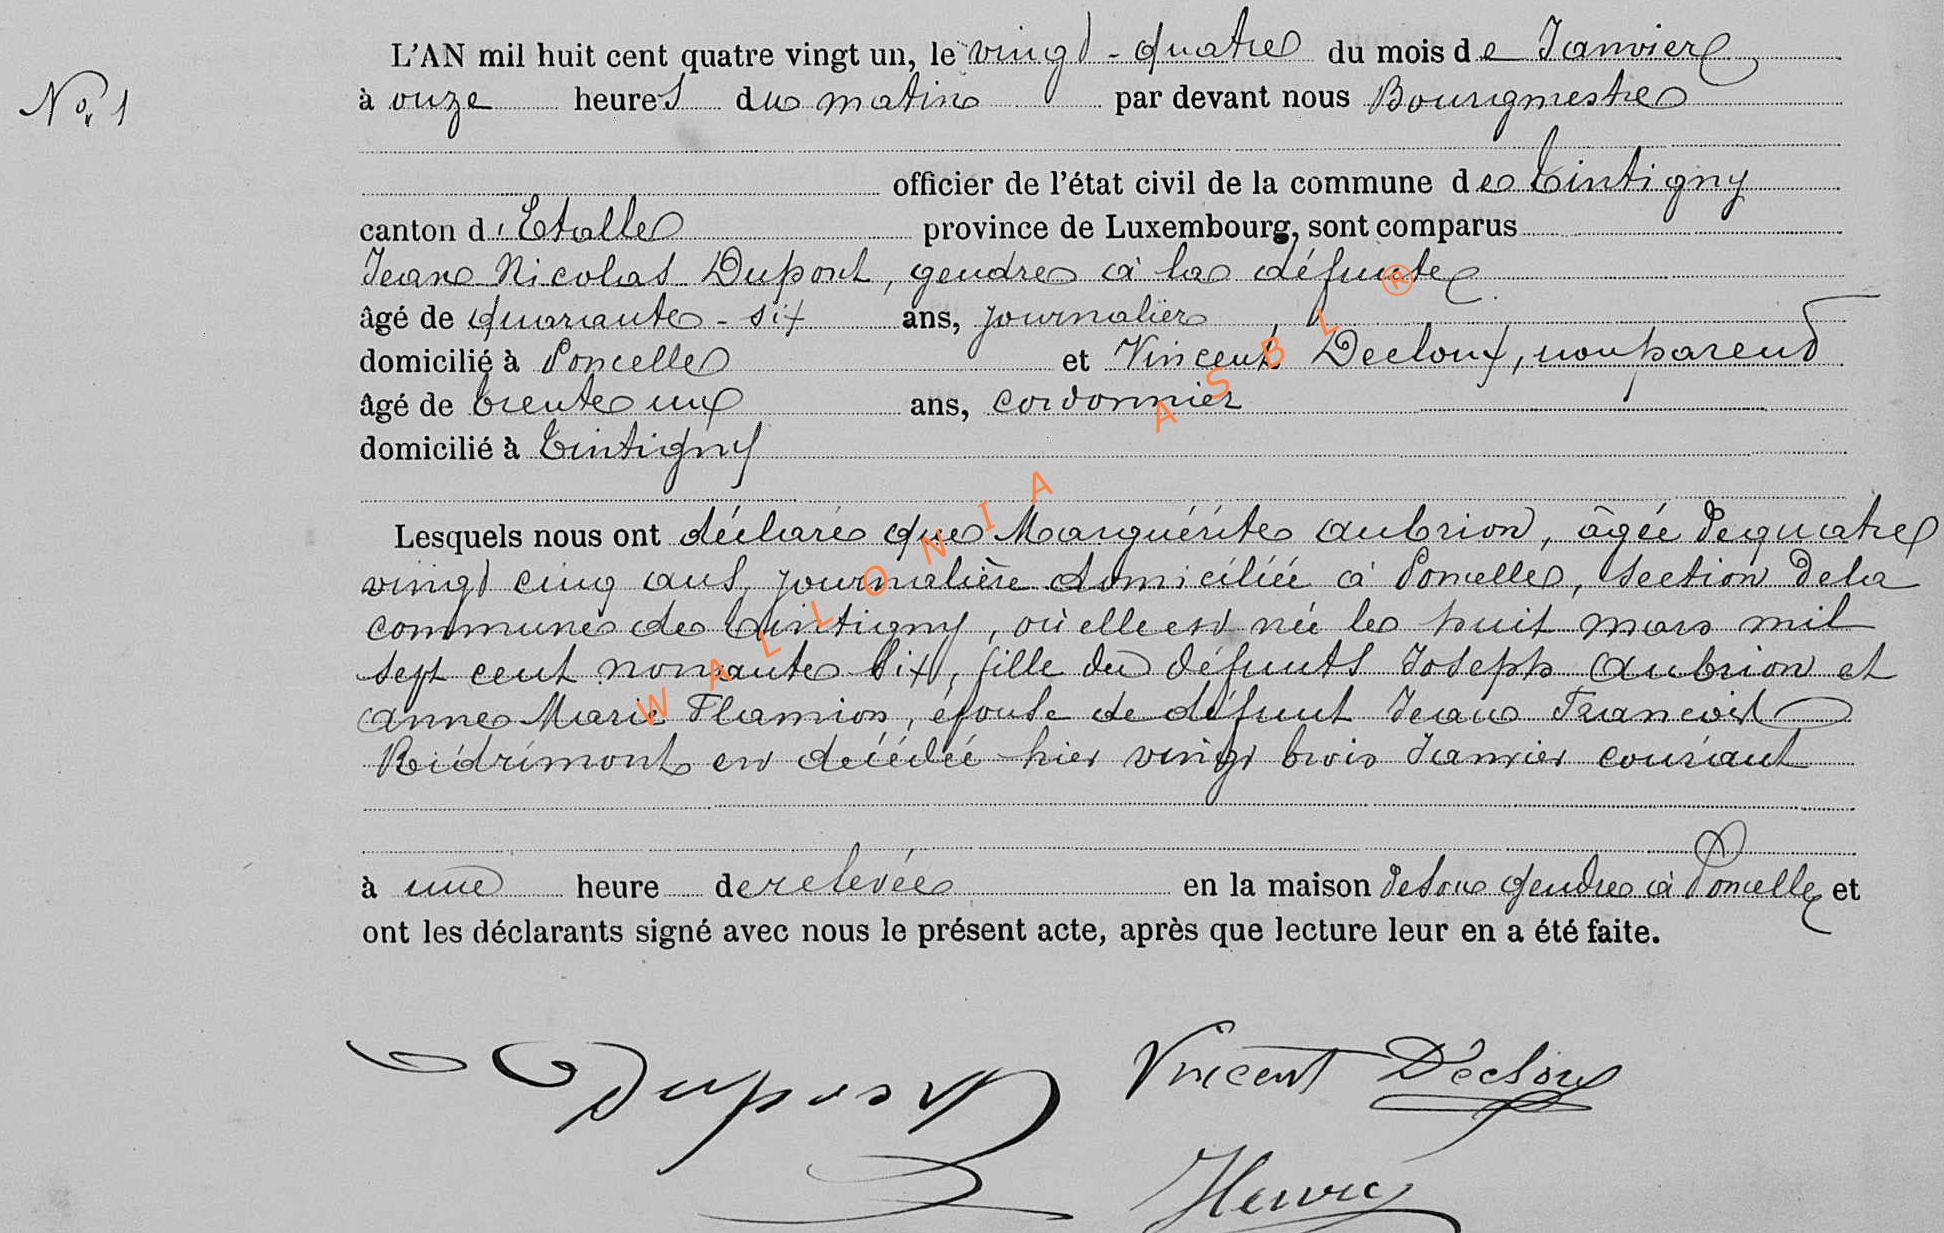 L'AN mil huit cent quatre vingt un, le vingt-quatre du mois de Janvier
No. 1
à onze heures du matin par devant nous Bourgmestre
officier de l'état civil de la commune de Tintigny
canton d'Etalle province de Luxembourg, sont comparus
Jean Nicolas Dupont, gendre à la défunte
âgé de quarante-six ans, journalier
domicilié à Poncelle et Vincent Decloux, non parent
âgé de trente un ans, cordonnier
domicilié à Tintigny
Lesquels nous ont déclaré que Marguérite Aubrion, âgée de quatre
vingt cinq ans, journalière domiciliée à Poncelle, section de la
commune de Tintigny, où elle est née le huit mars mil
sept cent nonante six, fille de défunts Joseph Aubrion et
Anne Marie Flamion, épouse de défunt Jean François
Riédrimont est décédée hier vingt trois Janvier courant
à une heure de relevée en la maison de son gendre à Poncelle et
ont les déclarants signé avec nous le présent acte, après que lecture leur en a été faite.
Dupont Vincent Décloux
Henry
WALLONIA ASBL ®